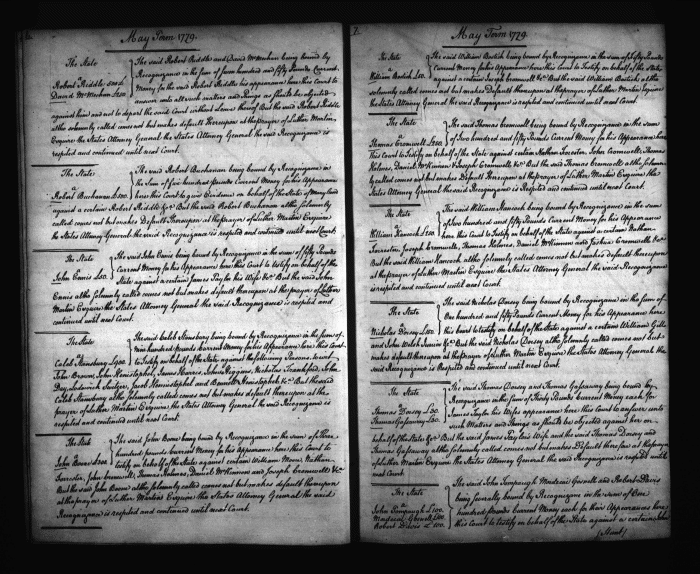 6.
May Term 1779.
The State
vs
Robert Riddle 500£
David McMechen £500
The said Robert Riddle and David McMechen being bound by
Recognizance in the sum of four hundred and fifty Pounds Current
Money for the said Robert Riddle his appearance here this Court to
answer unto all such matters and things as shall be objected
against him and not to depart the said Court without Leave thereof But the said Robert Riddle
altho solemnly called comes not but makes default thereupon at the prayer of Luther Martin
Esquire the States Attorney General the said Recognizance is
respited and continued until next Court.
The State
vs
Robert Buchanan £500.
The said Robert Buchanan being bound by Recognizance in
the Sum of five hundred pounds Current Money for his Appearance
here this Court to give Evidence on behalf of the State of Maryland
against a certain Robert Riddle &ca. But the said Robert Buchanan altho solemnly
called comes not but makes Default thereupon at the prayer of Luther Martin Esquire
the States Attorney General the said Recognizance is respited and continued until next Court.
The State
vs
John Ennis £50.
The said John Ennis being bound by Recognizance in the sum of fifty Pounds
Current Money for his Appearance here this Court to testify on behalf of the
State against a certain James Pay his Wife &ca. But the said John
Ennis altho solemnly called comes not but makes Default thereupon at the prayer of Luther
Martin Esquire the States Attorney General the said Recognizance is respited and
continued until next Court.
The State
vs
Caleb Stansbury £900.
The said Caleb Stansbury being bound by Recognizance in the Sum of
Nine hundred Pounds Current Money for his Appearance here this Court
to testify on behalf of the State against the following Persons to wit
John Brown, John Honistophel, James Harris, John Higgins, Nicholas Frankford, John
Day, Frederick Snider, Jacob Honistophel and Barnett Honistophel &ca. But the said
Caleb Stansbury altho solemnly called comes not but makes default thereupon at the
prayer of Luther Martin Esquire the States Attorney General the said Recognizance is
respited and continued until next Court.
The State
vs
John Bone £300.
The said John Bone being bound by Recognizance in the sum of three
hundred pounds Current Money for his appearance here this Court to
testify on behalf of the State against certain William Moore, Nathan
Forrester, John Cromwell, Thomas Holmes, Daniel McKinnon and Joseph Cromwell &ca
But the said John Bone altho solemnly called comes not but makes default thereupon
at the prayer of Luther Martin Esquire the States Attorney General the said
Recognizance is respited and continued until next Court.
7.
May Term 1779.
The State
vs
William Bostick £50.
The said William Bostick being bound by Recognizance in the sum of fifty Pounds
Current Money for his Appearance here this Court to Testify on behalf of the State
against a certain Joseph Cromwell &ca. But the said William Bostick altho
solemnly called comes not but makes Default thereupon at the prayer of Luther Martin Esquire
the States Attorney General the said Recognizance is respited and continued until next Court.
The State
vs
Thomas Cromwell £250
The said Thomas Cromwell being bound by Recognizance in the sum
of Two hundred and fifty Pounds Current Money for his Appearance here
this Court to Testify on behalf of the State against certain Nathan Forrester, John Cromwell, Thomas
Holmes, Daniel McKinnon & Joseph Cromwell &ca. But the said Thomas Cromwell altho solemn
ly called comes not but makes Default thereupon at the prayer of Luther Martin Esquire the
States Attorney General the said Recognizance is Respited and continued until next Court.
The State
vs
William Hancock £250
The said William Hancock being bound by Recognizance in the sum
of two hundred and fifty Pounds Current Money for his Appearance
here this Court to testify on behalf of the State against a certain Nathan
Forrester, Joseph Cromwell, Thomas Holmes, Daniel McKinnon and Joshua Cromwell &ca
But the said William Hancock altho solemnly called comes not but makes default thereupon
at the prayer of Luther Martin Esquire the States Attorney General the said Recognizance
is respited and continued until next Court.
The State
vs
Nicholas Dorsey £150
The said Nicholas Dorsey being bound by Recognizance in the sum of
One hundred and fifty Pounds Current Money for his Appearance here
this Court to testify on behalf of the State against a certain William Gill
and John Welch Junior &ca. But the said Nicholas Dorsey altho solemnly called comes not but
makes default thereupon at the prayer of Luther Martin Esquire the States Attorney General the
said Recognizance is Respited and continued until next Court.
The State
vs
Thomas Dorsey £30.
Thomas Gassaway £30.
The said Thomas Dorsey and Thomas Gassaway being bound by
Recognizance in the sum of Thirty Pounds Current Money each for
James Pay his Wifes appearance here this Court to answer unto
such Matters and Things as shall be objected against her on
behalf of the State &ca. But the said James Pay his Wife and the said Thomas Dorsey and
Thomas Gassaway altho solemnly called comes not but makes Default therefore at the prayer
of Luther Martin Esquire the States Attorney General the said Recognizance is respited until
next Court.
The State
vs
John £100.
£100.
Robert Davis £100.
The said John and Robert Davis
being severally bound by Recognizance in the sum of One
hundred pounds Current Money each for their Appearance here
this Court to testify on behalf of the State against a certain John
(Hunt)